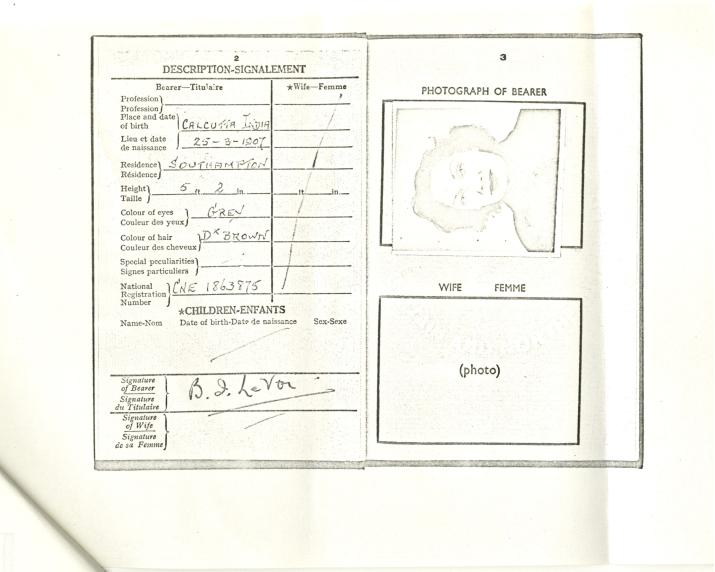 2
DESCRIPTION-SIGNALEMENT
Bearer—Titulaire ★Wife—Femme
Profession
Profession
Place and date of birth CALCUTTA INDIA
Lieu et date de naissance 25-3-1907
Residence SOUTHAMPTON
Résidence
Height 5 ft 2 in ft in
Taille
Colour of eyes GREY
Couleur des yeux
Colour of hair DK BROWN
Couleur des cheveux
Special peculiarities
Signes particuliers
National Registration Number CNE 1863875
★CHILDREN-ENFANTS
Name-Nom Date of birth-Date de naissance Sex-Sexe
Signature of Bearer B. I. LeVoi
Signature du Titulaire
Signature of Wife
Signature de sa Femme
3
PHOTOGRAPH OF BEARER
WIFE FEMME
(photo)